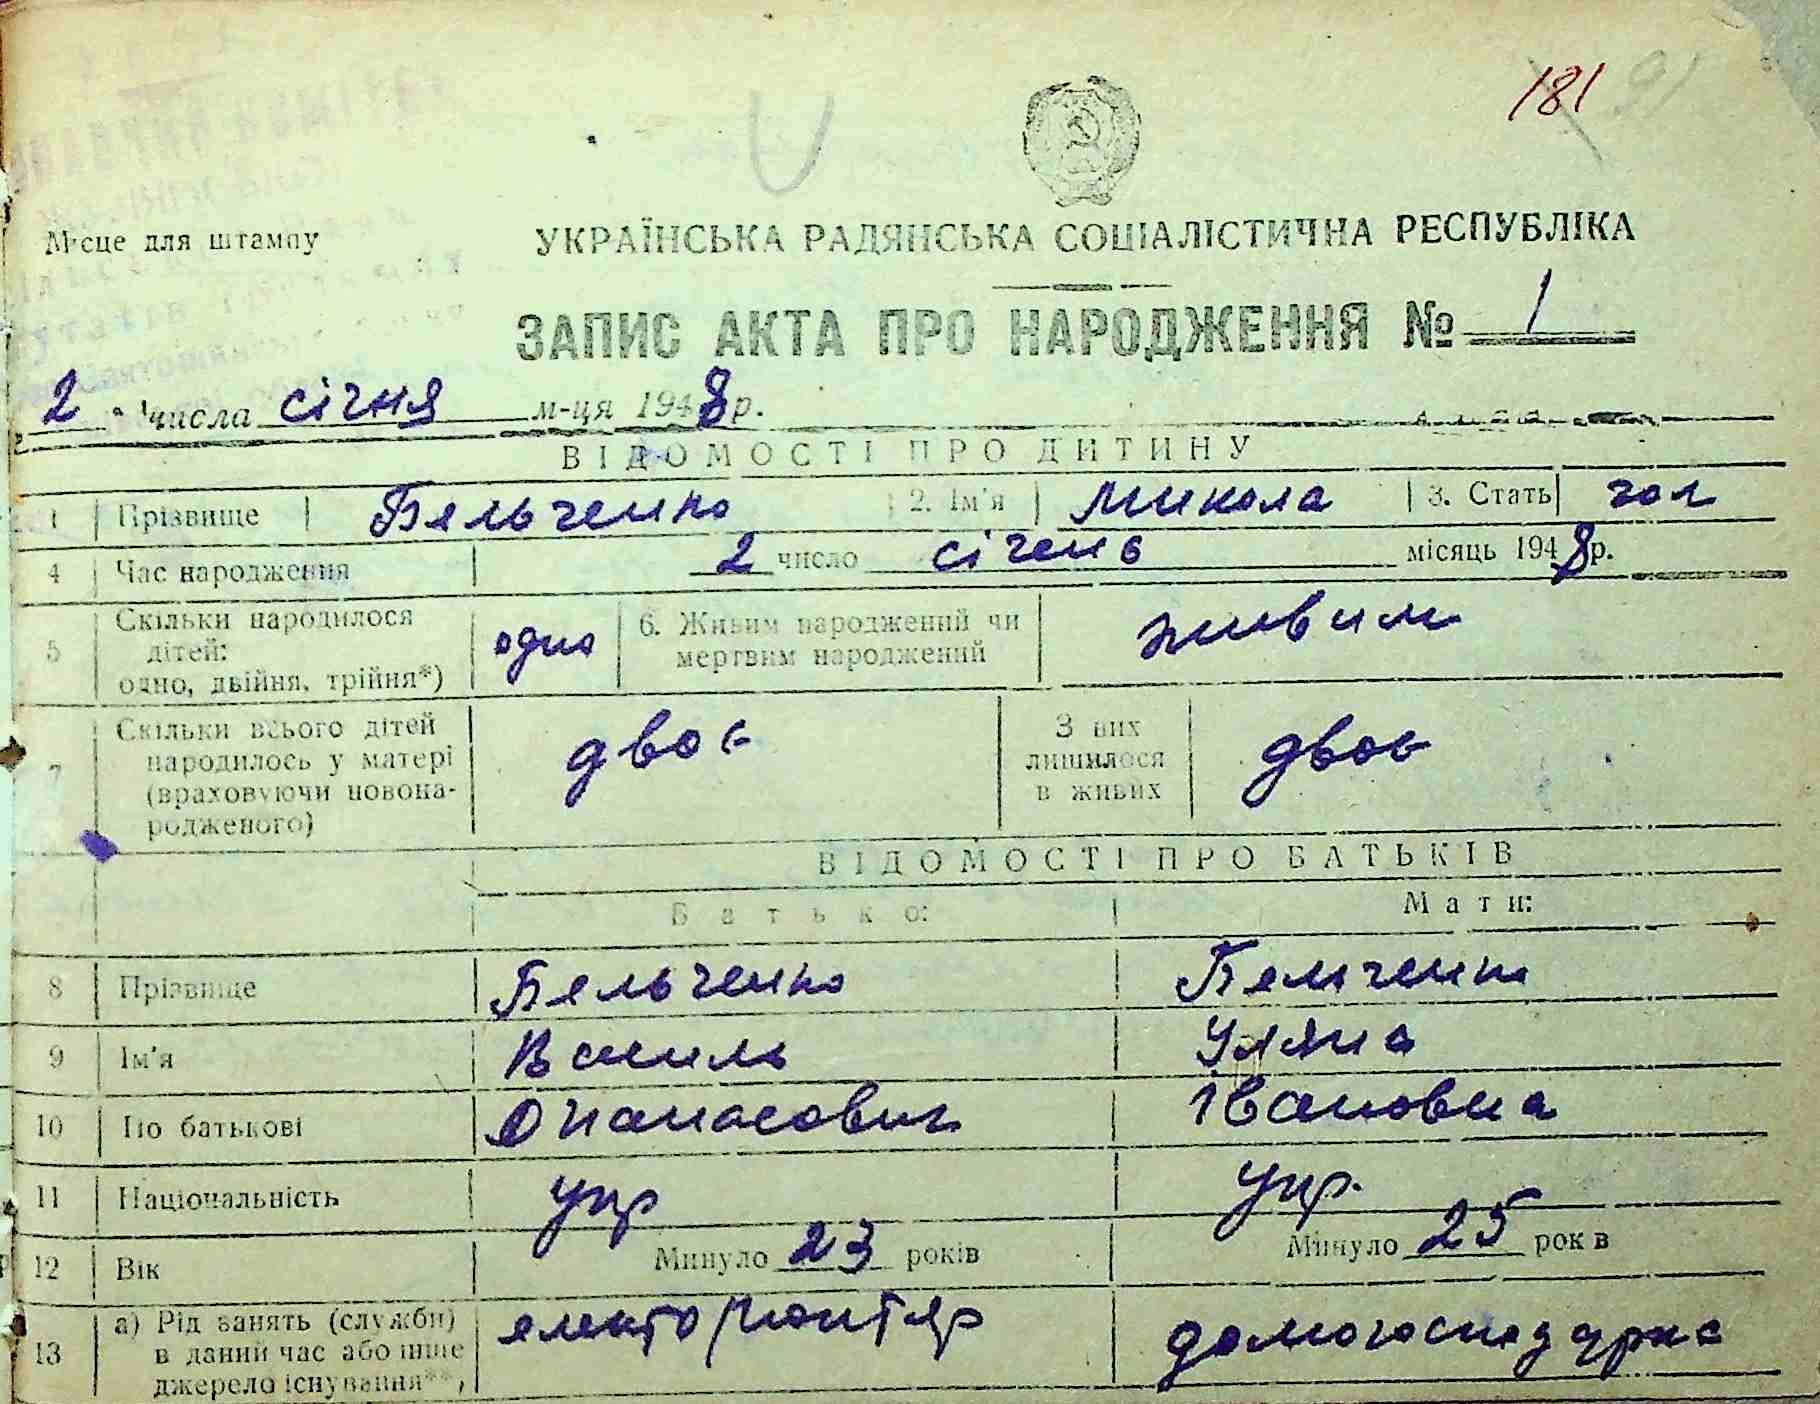 181 91
Місце для штампу
УКРАЇНСЬКА РАДЯНСЬКА СОЦІАЛІСТИЧНА РЕСПУБЛІКА
ЗАПИС АКТА ПРО НАРОДЖЕННЯ № 1
2 числа січня м-ця 1948 р.
ВІДОМОСТІ ПРО ДИТИНУ
1 Прізвище Бельченко 2. Ім'я Микола 3. Стать чол
4 Час народження 2 число січень місяць 1948 р.
5 Скільки народилося дітей: одно, двійня, трійня*) одно 6. Живим народжений чи мертвим народжений живим
7 Скільки всього дітей народилось у матері (враховуючи новонародженого) двоє З них лишилося в живих двоє
ВІДОМОСТІ ПРО БАТЬКІВ
Батько: Мати:
8 Прізвище Бельченко Бельченко
9 Ім'я Василь Уляна
10 По батькові Опанасович Івановна
11 Національність укр укр.
12 Вік Минуло 23 років Минуло 25 років
13 а) Рід занять (служби) в даний час або інше джерело існування**) електромонтяр домогосподарка